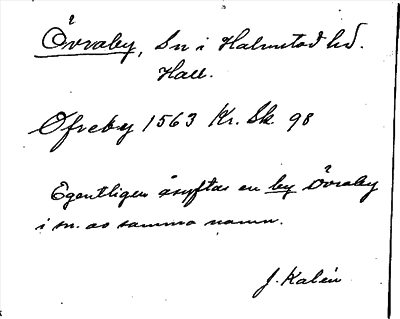 Övraby, Sn i Halmstad hd.
Hall.
Ofreby 1563 Kr. Sk. 98
Egentligen åsyftas en by Övraby
i sn. av samma namn.
J. Kalén